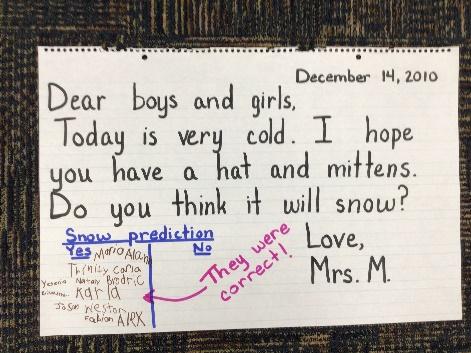 December 14, 2010
Dear boys and girls,
Today is very cold. I hope
you have a hat and mittens.
Do you think it will snow?
Love,
Mrs. M.
Snow prediction
Yes No
Mario Alan
Trinity Carla
Yesenia Nataly Brodric
Karla
Jason Weston
Fabian Alex
They were
correct!